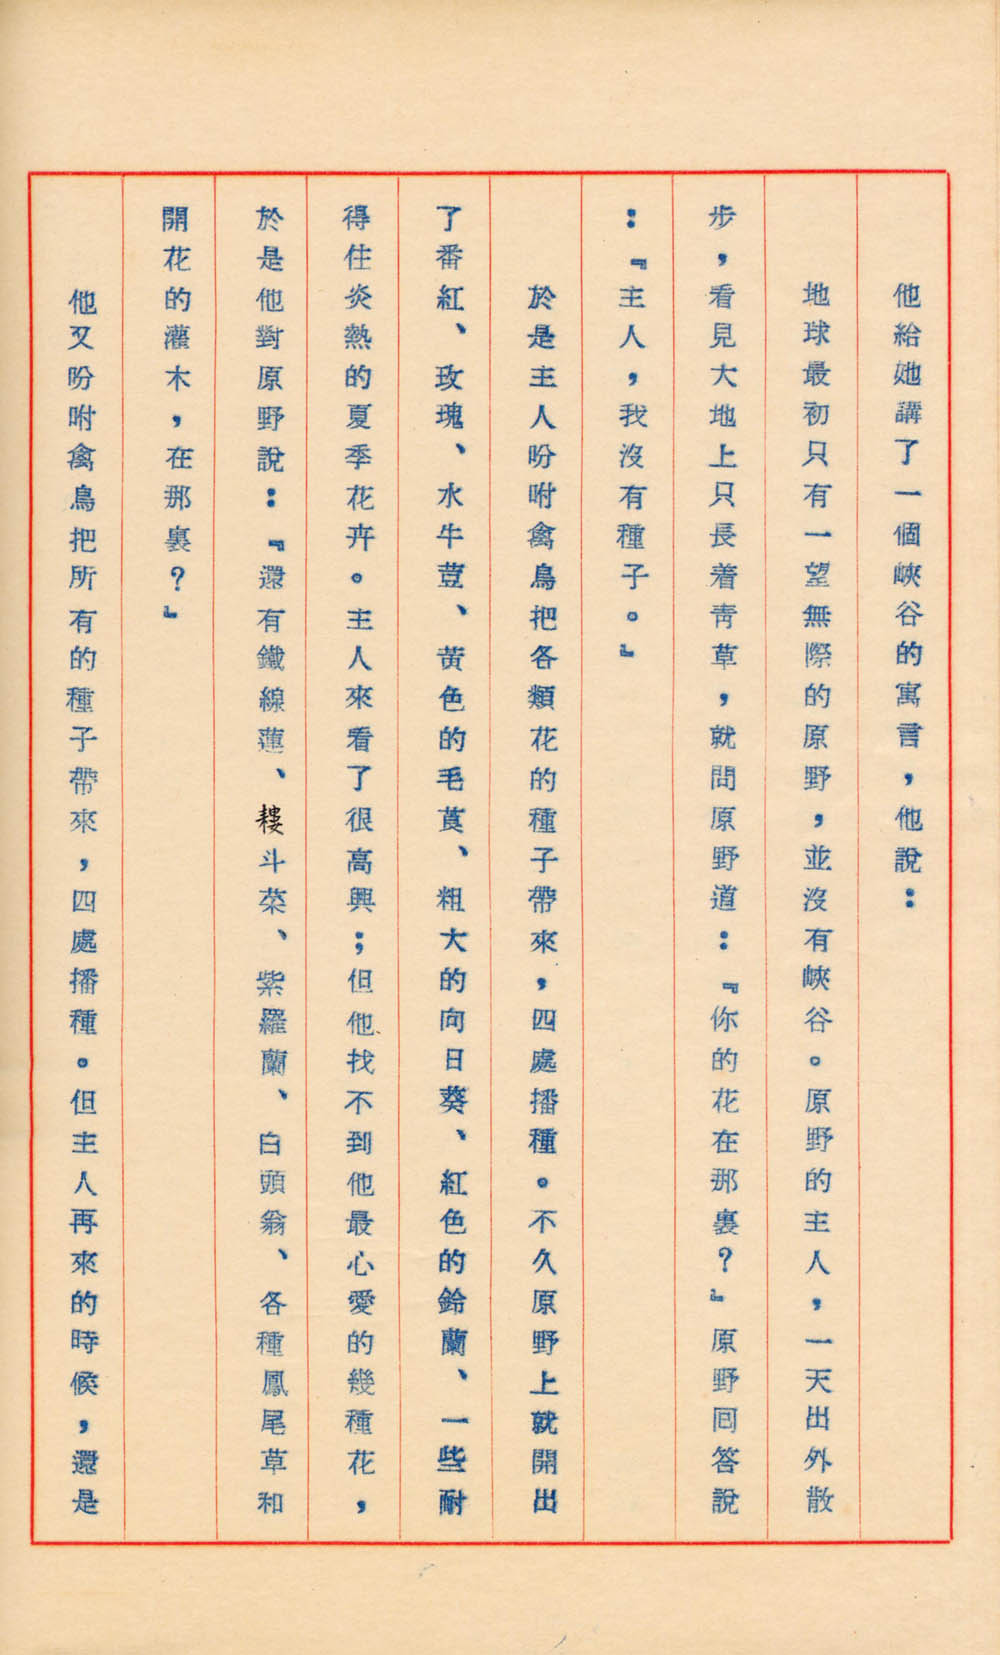 他給她講了一個峽谷的寓言，他說：
地球最初只有一望無際的原野，並沒有峽谷。原野的主人，一天出外散
步，看見大地上只長着靑草，就問原野道：『你的花在那裏？』原野囘答說
：『主人，我沒有種子。』
於是主人吩咐禽鳥把各類花的種子帶來，四處播種。不久原野上就開出
了番紅、玫瑰、水牛荳、黃色的毛茛、粗大的向日葵、紅色的鈴蘭、一些耐
得住炎熱的夏季花卉。主人來看了很高興；但他找不到他最心愛的幾種花，
於是他對原野說：『還有鐵線蓮、耬斗菜、紫羅蘭、白頭翁、各種鳳尾草和
開花的灌木，在那裏？』
他又吩咐禽鳥把所有的種子帶來，四處播種。但主人再來的時候，還是